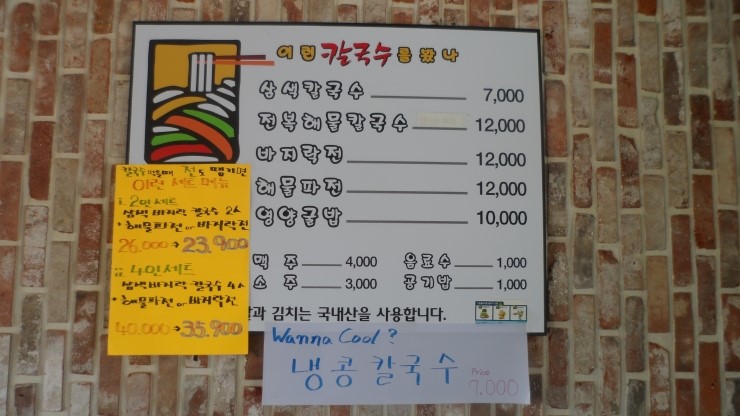 이런 칼국수를 봤나
삼색칼국수 7,000
전복해물칼국수 12,000
바지락전 12,000
해물파전 12,000
영양굴밥 10,000
맥 주 4,000 음료수 1,000
소 주 3,000 공기밥 1,000
과 김치는 국내산을 사용합니다.
칼국수 먹을때 전도 땡기면
이런 세트 메뉴
i. 2인세트
삼색 바지락 칼국수 2人
+ 해물파전 or 바지락전
26.000 → 23.900
ii. 4인세트
삼색바지락 칼국수 4人
+ 해물파전 or 바지락전
40.000 → 35.900
Wanna Cool?
냉콩칼국수
Price
7.000